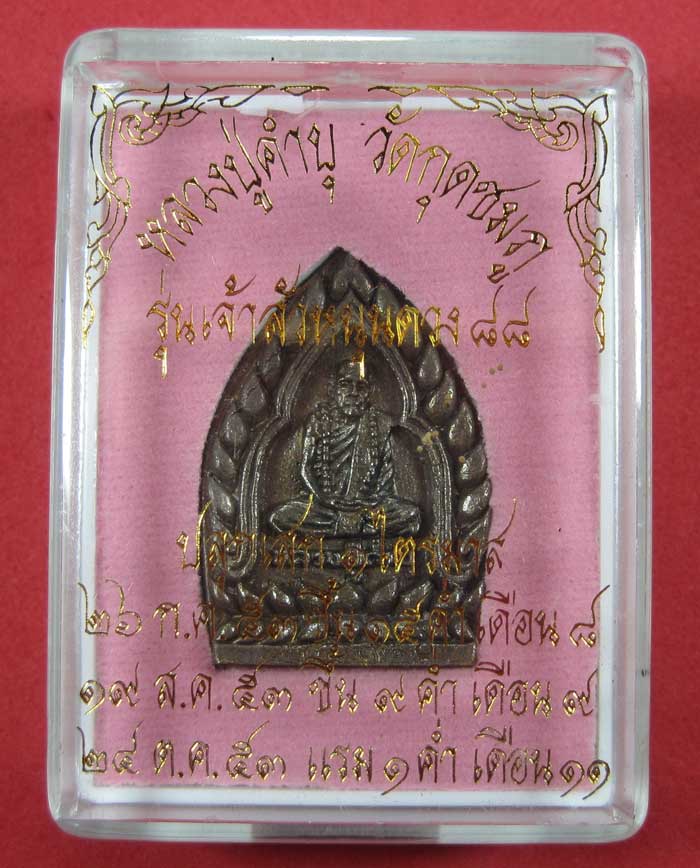 หลวงปู่คำบุ วัดกุดชมภู
รุ่นเจ้าสัวหนุนดวง ๘๘
ปลุกเสก ๑ ไตรมาส
๒๖ ก.ค. ๕๓ ขึ้น ๑๕ ค่ำ เดือน ๘
๑๙ ส.ค. ๕๓ ขึ้น ๙ ค่ำ เดือน ๙
๒๔ ต.ค. ๕๓ แรม ๑ ค่ำ เดือน ๑๑